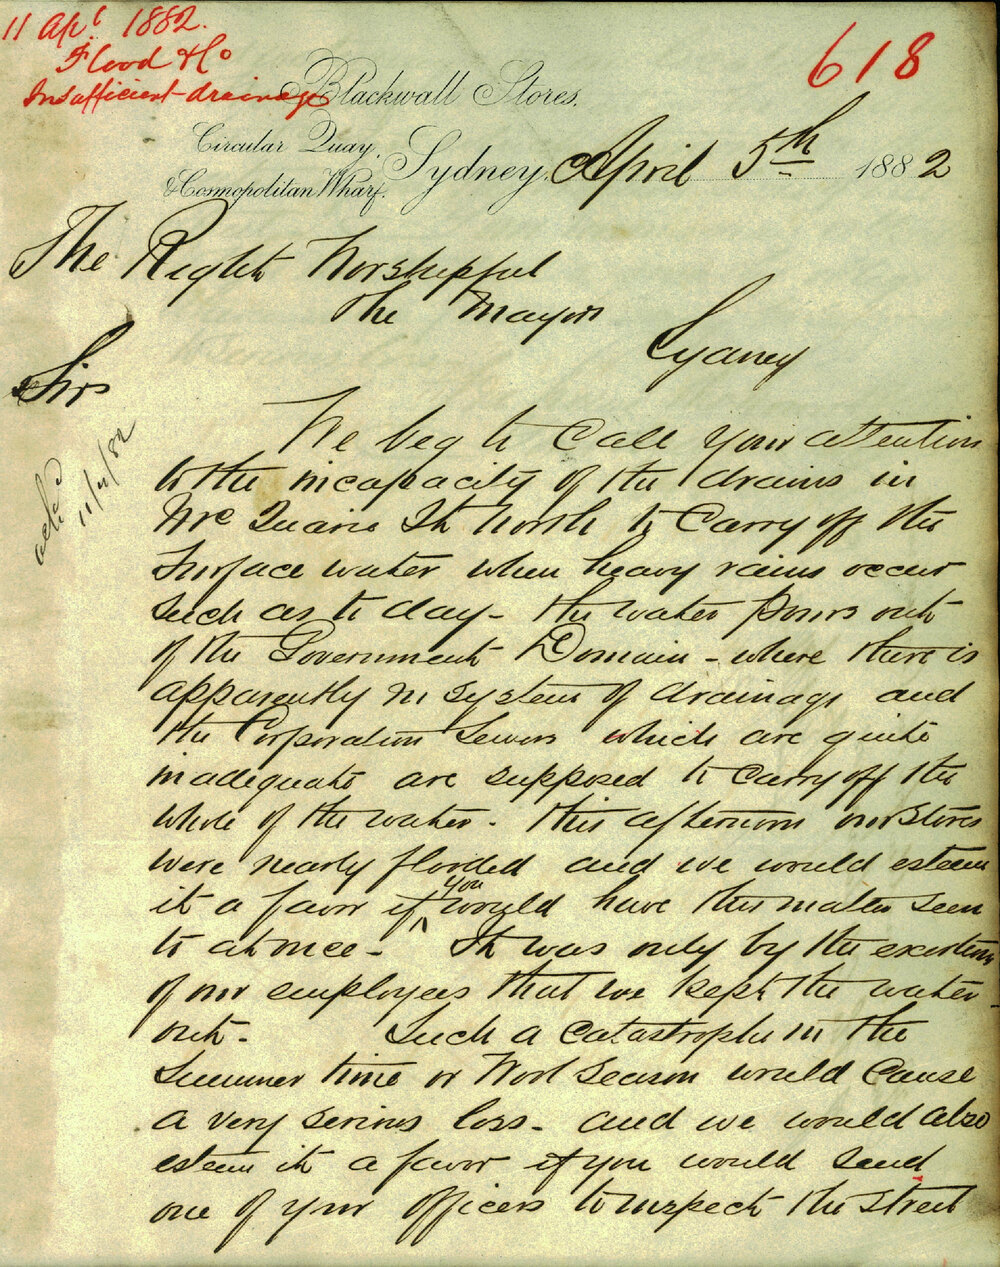 11 Apl 1882.
Flood & Co
Insufficient drainage
618
Blackwall Stores.
Circular Quay,
& Cosmopolitan Wharf.
Sydney, April 5th 1882
The Right Worshipful
The Mayor
Sydney
Sirs
ackd
11/4/82
We beg to call your attention
to the incapacity of the drains in
Mcquarie St North to carry off the
surface water when heavy rains occur
such as to day - the water pours out
of the Government Domain - where there is
apparently no system of drainage and
the Corporation Sewers which are quite
inadequate are supposed to carry off the
whole of the water. This afternoon our Stores
were nearly flooded and we would esteem
it a favor if you would have this matter seen
to at once - It was only by the exertions
of our employees that we kept the water
out. Such a catastrophe in the
summer time or Wool Season would cause
a very serious loss - and we would also
esteem it a favor if you would send
one of your officers to inspect the street